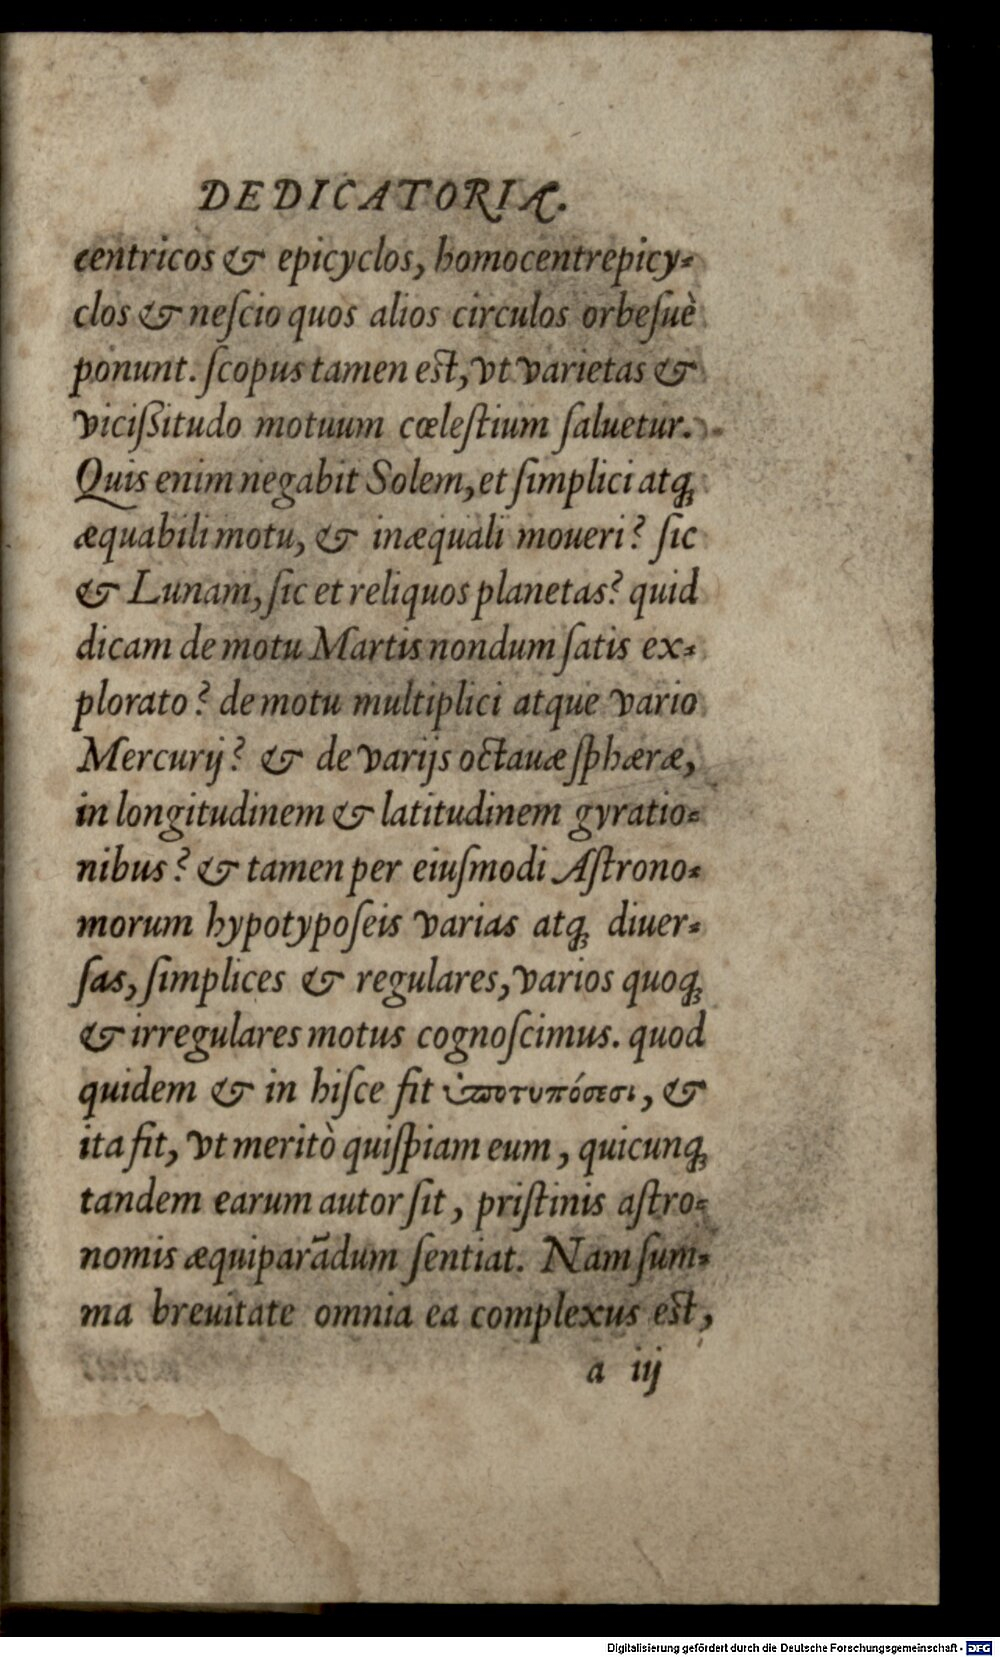 DEDICATORIÆ.
centricos & epicyclos, homocentrepicy-
clos & neſcio quos alios circulos orbeſuè
ponunt. ſcopus tamen eſt, vt varietas &
viciſsitudo motuum cœleſtium ſaluetur.
Quis enim negabit Solem, et ſimplici atq;
æquabili motu, & inæquali moueri? ſic
& Lunam, ſic et reliquos planetas? quid
dicam de motu Martis nondum ſatis ex-
plorato? de motu multiplici atque vario
Mercurij? & de varijs octauæ ſphæræ,
in longitudinem & latitudinem gyratio-
nibus? & tamen per eiuſmodi Aſtrono-
morum hypotypoſeis varias atq; diuer-
ſas, ſimplices & regulares, varios quoq;
& irregulares motus cognoſcimus. quod
quidem & in hiſce fit ὑποτυπόσεσι, &
ita fit, vt meritò quiſpiam eum, quicunq;
tandem earum autor ſit, priſtinis aſtro-
nomis æquiparãdum ſentiat. Nam ſum-
ma breuitate omnia ea complexus eſt,
a iij
Digitalisierung gefördert durch die Deutsche Forschungsgemeinschaft - DFG